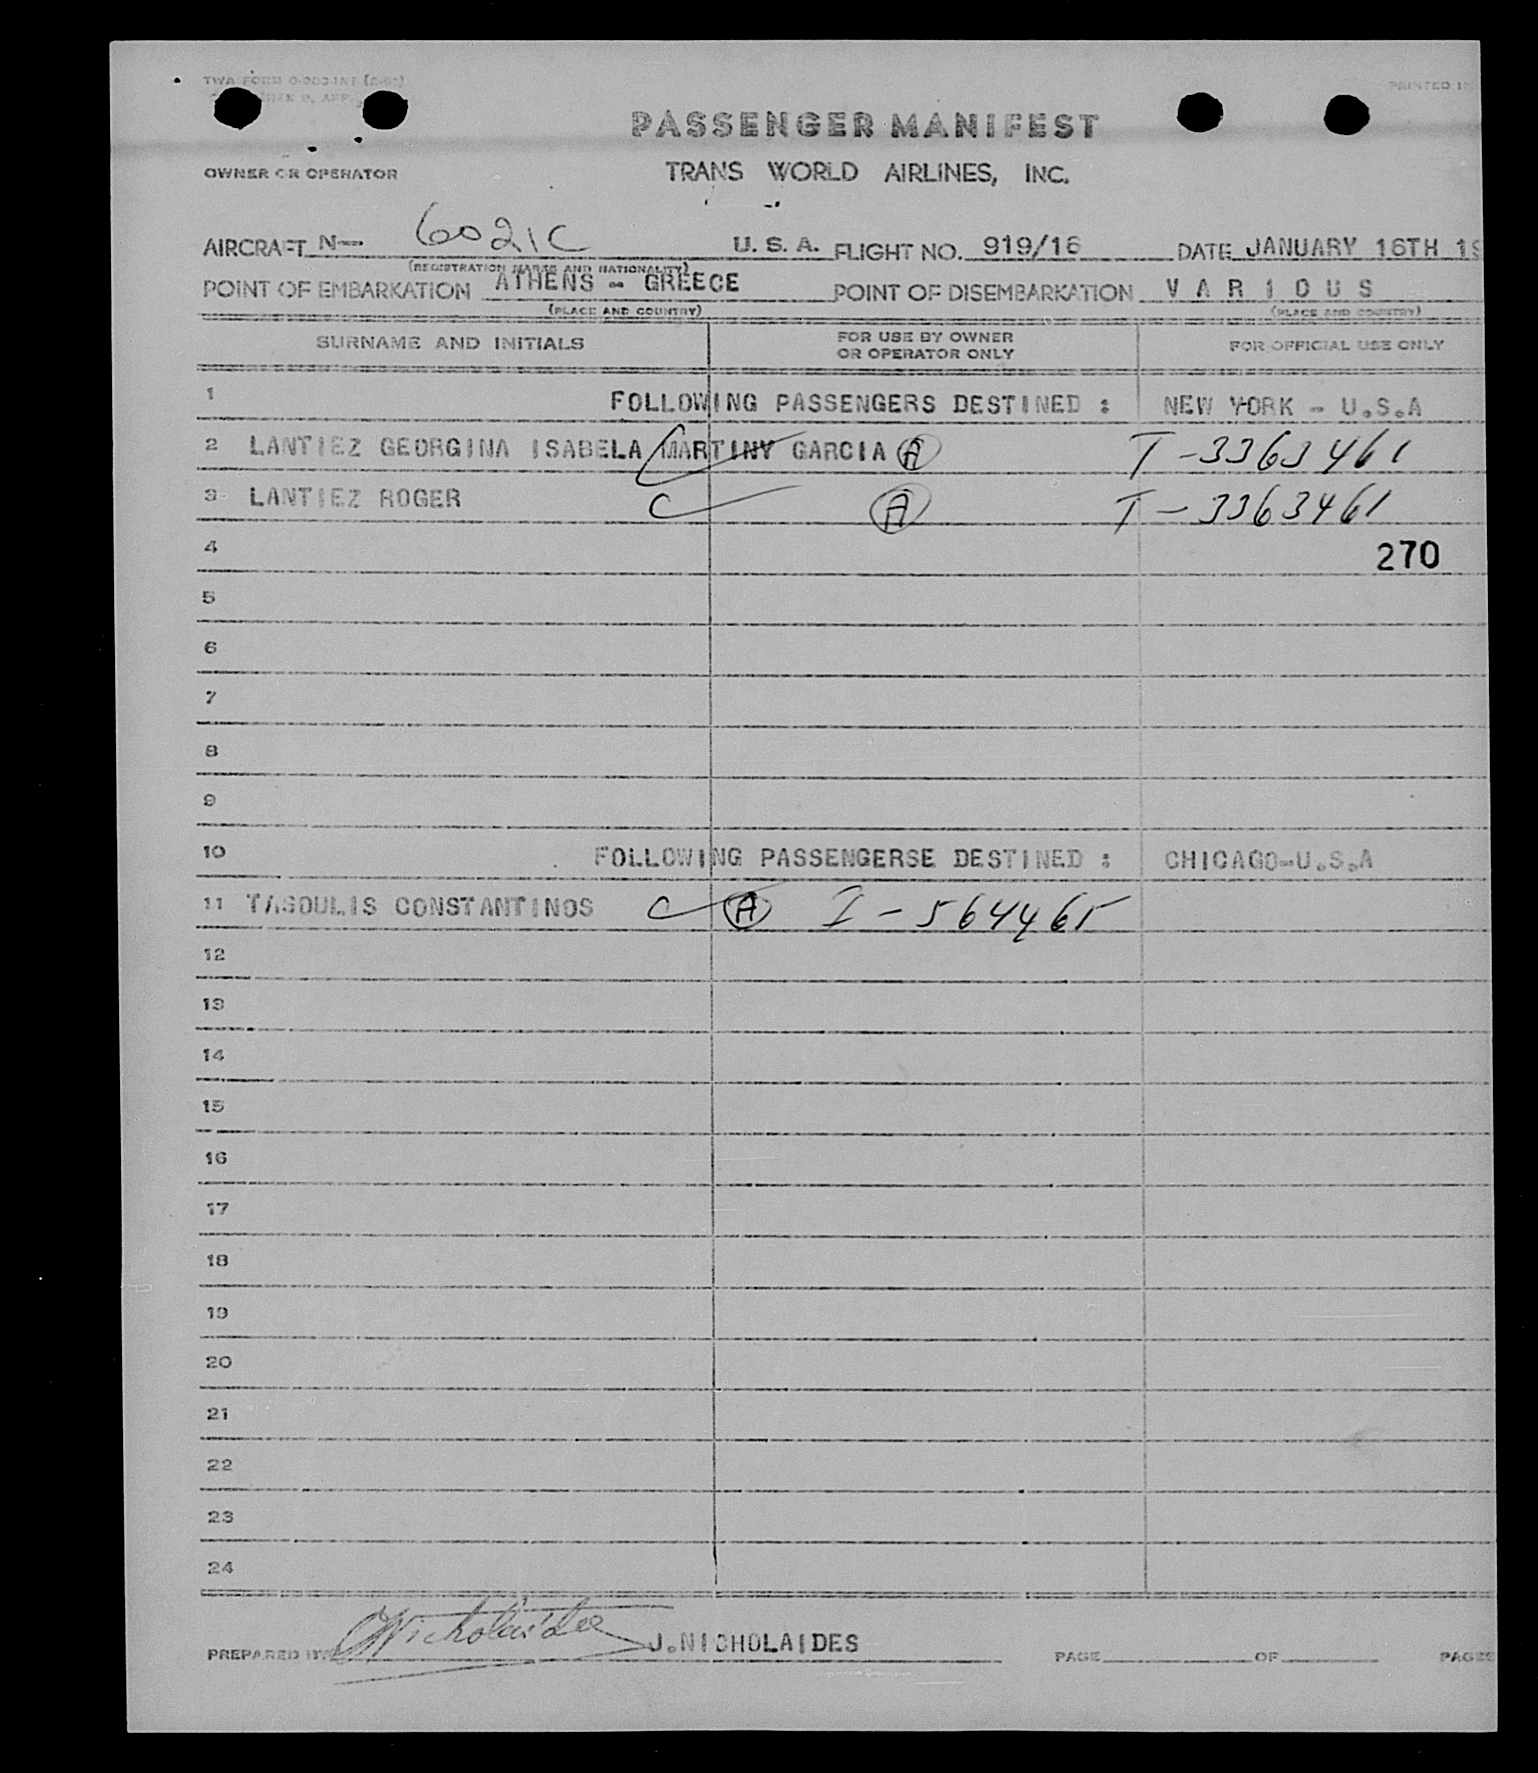 TWA FORM
PRINTED
PASSENGER MANIFEST
OWNER OR OPERATOR
TRANS WORLD AIRLINES, INC.
AIRCRAFT N-- 6021C U. S. A. FLIGHT NO. 919/16 DATE JANUARY 16TH 19
(REGISTRATION MARKS AND NATIONALITY)
POINT OF EMBARKATION ATHENS - GREECE POINT OF DISEMBARKATION V A R I O U S
(PLACE AND COUNTRY) (PLACE AND COUNTRY)
SURNAME AND INITIALS FOR USE BY OWNER OR OPERATOR ONLY FOR OFFICIAL USE ONLY
1 FOLLOWING PASSENGERS DESTINED : NEW YORK - U.S.A
2 LANTIEZ GEORGINA ISABELA MARTINY GARCIA A T-3363461
3 LANTIEZ ROGER C A T-3363461
4 270
5
6
7
8
9
10 FOLLOWING PASSENGERSE DESTINED : CHICAGO-U.S.A
11 TASOULIS CONSTANTINOS C A I-564465
12
13
14
15
16
17
18
19
20
21
22
23
24
PREPARED BY Nicholaides J.NICHOLAIDES PAGE OF PAGES